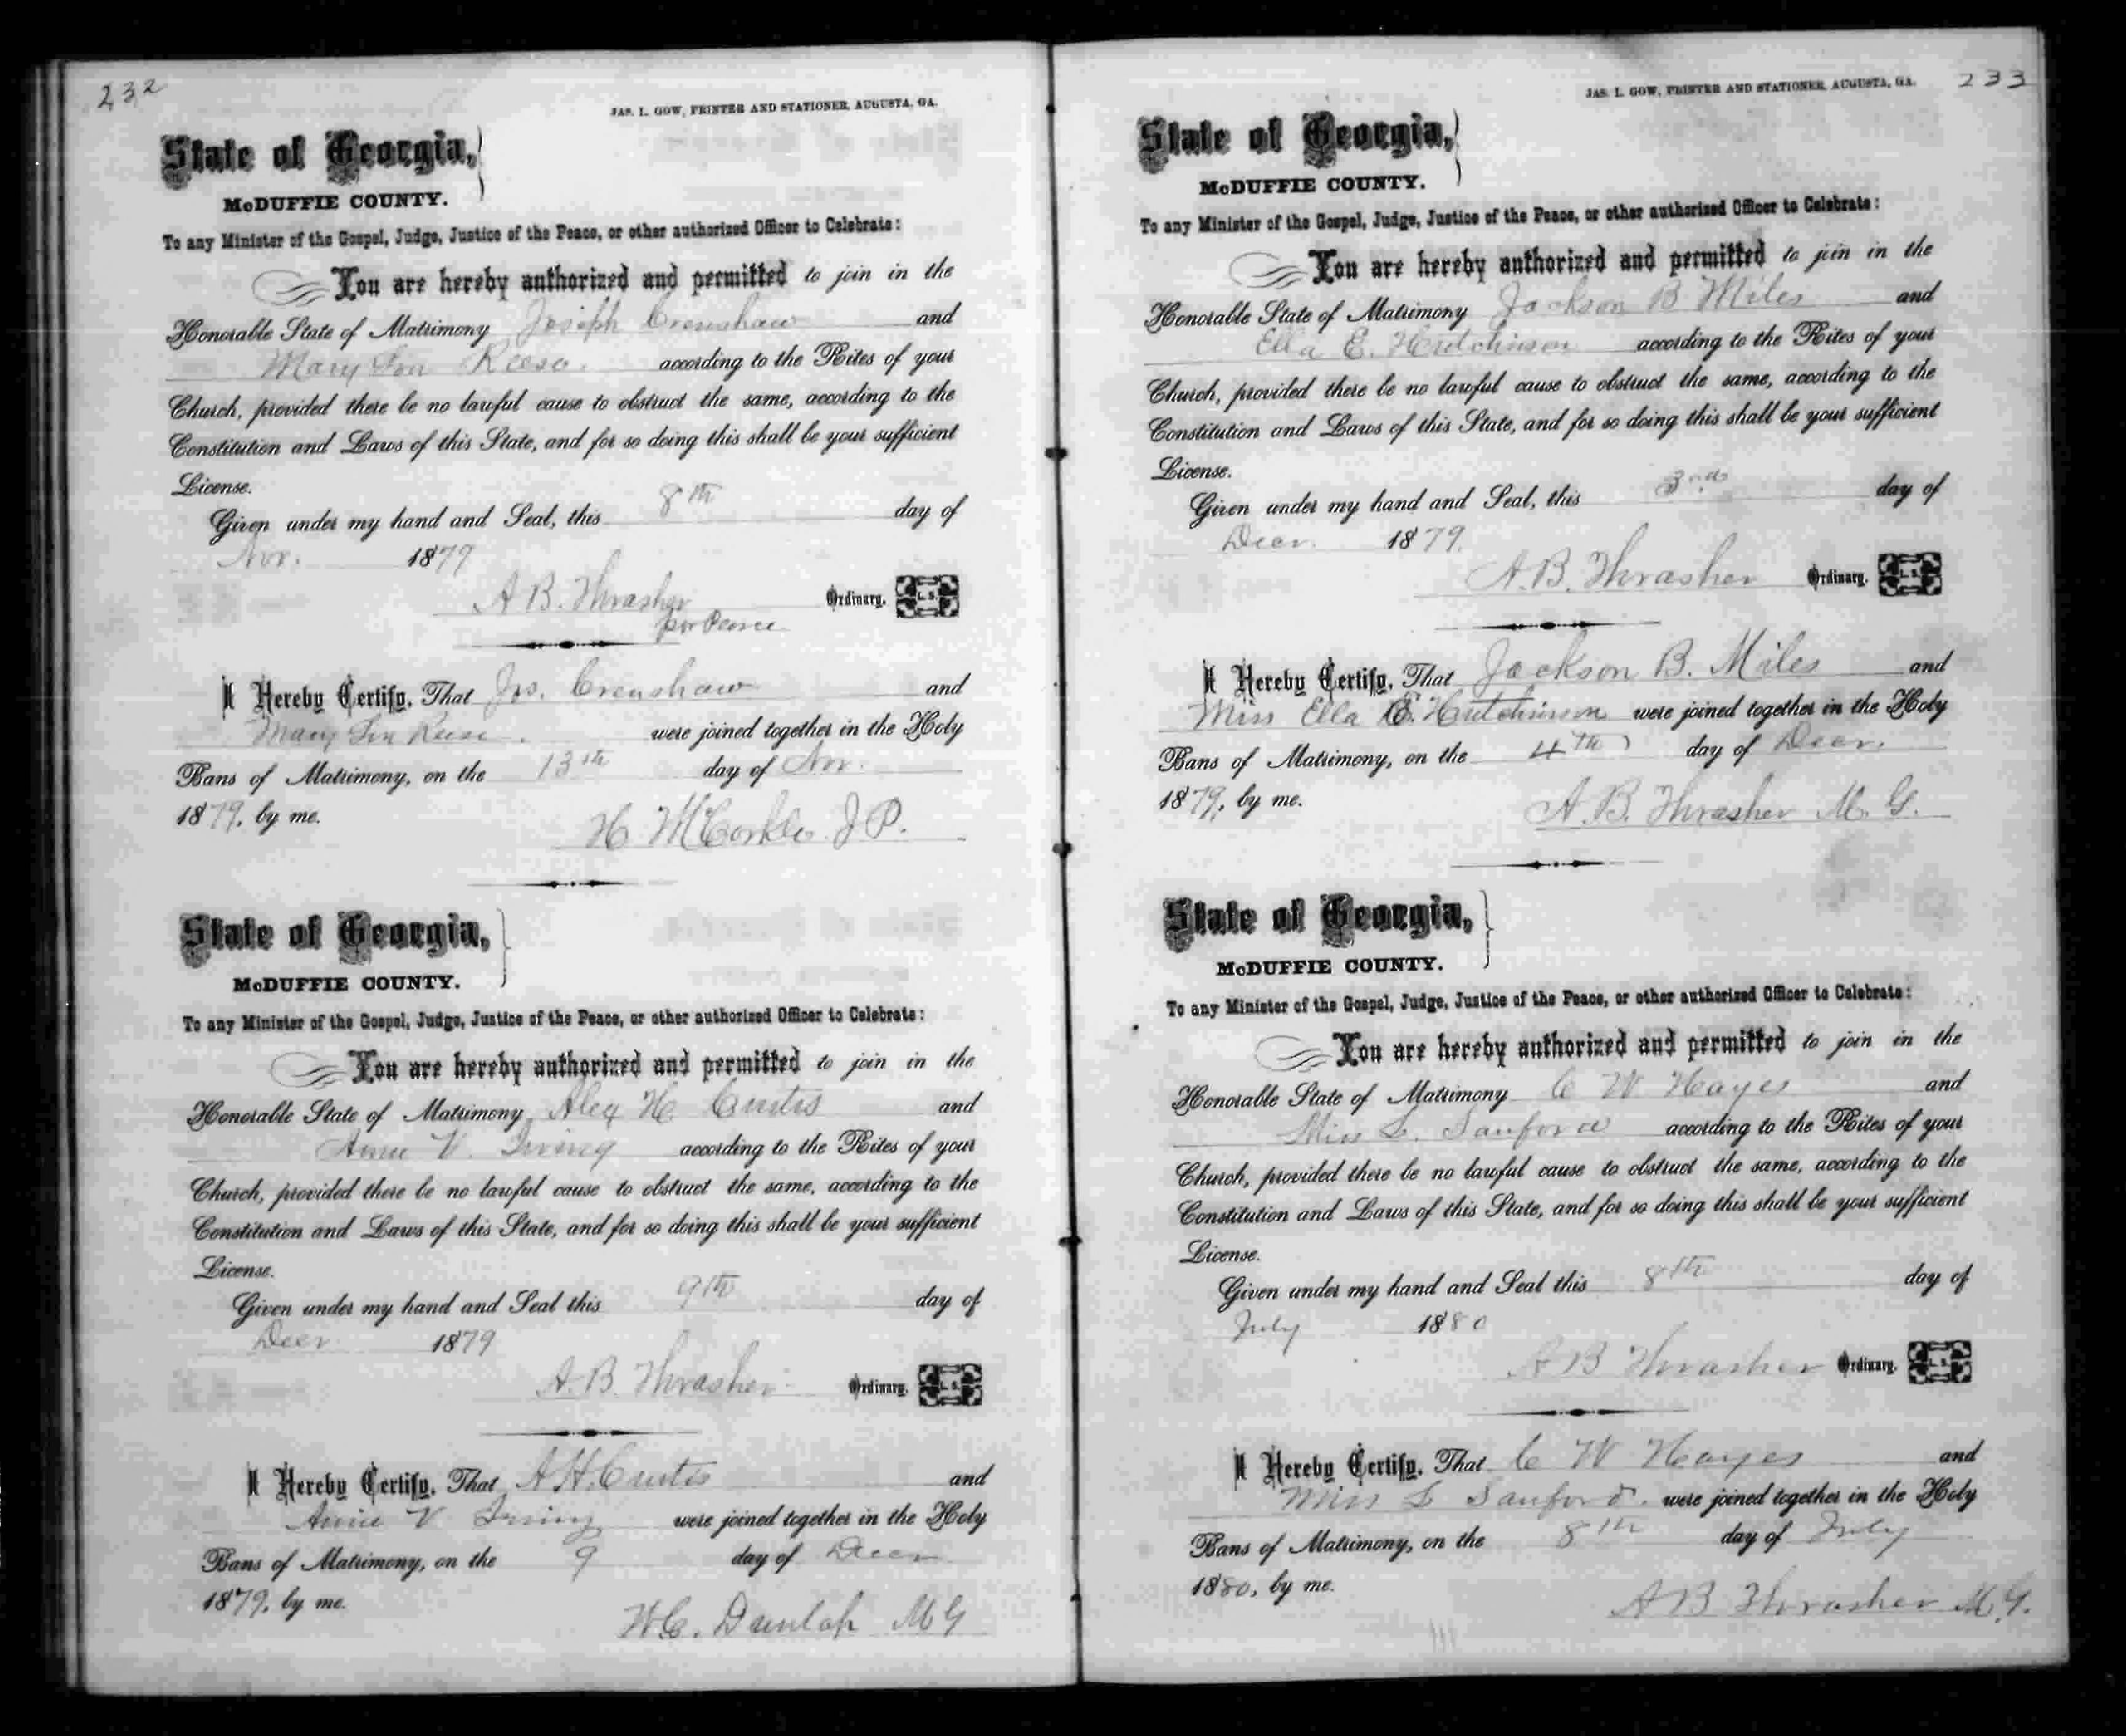 232
JAS. L. GOW, PRINTER AND STATIONER, AUGUSTA, GA.
State of Georgia,
McDUFFIE COUNTY.
To any Minister of the Gospel, Judge, Justice of the Peace, or other authorized Officer to Celebrate:
You are hereby authorized and permitted to join in the
Honorable State of Matrimony Joseph Crenshaw and
Mary Lou Reese. according to the Rites of your
Church, provided there be no lawful cause to obstruct the same, according to the
Constitution and Laws of this State, and for so doing this shall be your sufficient
License.
Given under my hand and Seal, this 8th day of
Nov. 1879
A B. Thrasher Ordinary. L. S.
per Pearce
I Hereby Certify, That Jos. Crenshaw and
Mary Lou Reese. were joined together in the Holy
Bans of Matrimony, on the 13th day of Nov.
1879, by me.
H McCorkle J P.
State of Georgia,
McDUFFIE COUNTY.
To any Minister of the Gospel, Judge, Justice of the Peace, or other authorized Officer to Celebrate:
You are hereby authorized and permitted to join in the
Honorable State of Matrimony Alex H Curtis and
Annie V. Irving according to the Rites of your
Church, provided there be no lawful cause to obstruct the same, according to the
Constitution and Laws of this State, and for so doing this shall be your sufficient
License.
Given under my hand and Seal this 9th day of
Decr 1879
A. B. Thrasher Ordinary. L. S.
I Hereby Certify, That A H. Curtis and
Annie V Irving were joined together in the Holy
Bans of Matrimony, on the 9 day of Decr
1879, by me.
W. C. Dunlap M G
233
JAS. L. GOW, PRINTER AND STATIONER, AUGUSTA, GA.
State of Georgia,
McDUFFIE COUNTY.
To any Minister of the Gospel, Judge, Justice of the Peace, or other authorized Officer to Celebrate:
You are hereby authorized and permitted to join in the
Honorable State of Matrimony Jackson B Miles and
Ella E. Hutchinson according to the Rites of your
Church, provided there be no lawful cause to obstruct the same, according to the
Constitution and Laws of this State, and for so doing this shall be your sufficient
License.
Given under my hand and Seal, this 3rd day of
Decr. 1879.
A. B. Thrasher Ordinary. L. S.
I Hereby Certify, That Jackson B. Miles and
Miss Ella E. Hutchinson were joined together in the Holy
Bans of Matrimony, on the 4th day of Decr.
1879, by me.
A. B. Thrasher M. G.
State of Georgia,
McDUFFIE COUNTY.
To any Minister of the Gospel, Judge, Justice of the Peace, or other authorized Officer to Celebrate:
You are hereby authorized and permitted to join in the
Honorable State of Matrimony C W Hayes and
Miss L. Sanford according to the Rites of your
Church, provided there be no lawful cause to obstruct the same, according to the
Constitution and Laws of this State, and for so doing this shall be your sufficient
License.
Given under my hand and Seal this 8th day of
July 1880
A B Thrasher Ordinary. L. S.
I Hereby Certify, That C W Hayes and
Miss L Sanford. were joined together in the Holy
Bans of Matrimony, on the 8th day of July
1880, by me.
A B Thrasher M. G.